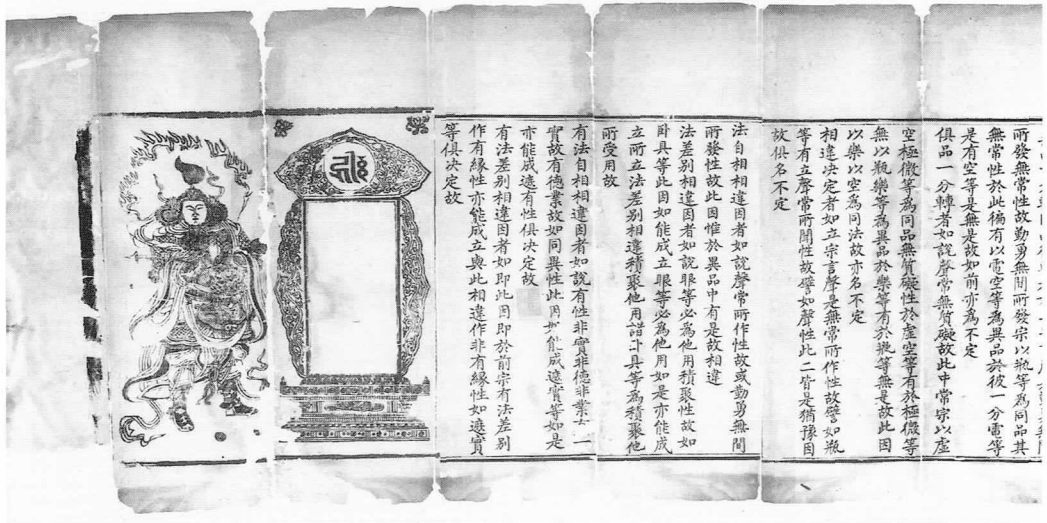 所發無常性故勤勇無間所發宗以瓶等為同品其
無常性於此徧有以電空等為異品於彼一分電等
是有空等是無是故如前亦為不定
俱品一分轉者如說聲常無質礙故此中常宗以虛
空極微等為同品無質礙性於虛空等有於極微等
無以瓶樂等為異品於樂等有於瓶等無是故此因
以樂以空為同法故亦名不定
相違决定者如立宗言聲是無常所作性故譬如瓶
等有立聲常所聞性故譬如聲性此二皆是猶豫因
故俱名不定
法自相相違因者如說聲常所作性故或勤勇無間
所發性故此因惟於異品中有是故相違
法差别相違因者如說眼等必為他用積聚性故如
臥具等此因如能成立眼等必為他用如是亦能成
立所立法差别相違積聚他用諸卧具等為積聚他
所受用故
有法自相相違因者如說有性非實非德非業 一
實故有德業故如同異性此因如能成遮實等如是
亦能成遮有性俱决定故
有法差别相違因者如即此因即於前宗有法差别
作有緣性亦能成立與此相違作非有緣性如遮實
等俱决定故